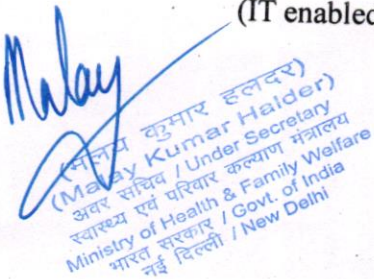 (IT enabled
Malay
(मलय कुमार हलदर)
(Malay Kumar Halder)
अवर सचिव / Under Secretary
स्वास्थ्य एवं परिवार कल्याण मंत्रालय
Ministry of Health & Family Welfare
भारत सरकार / Govt. of India
नई दिल्ली / New Delhi